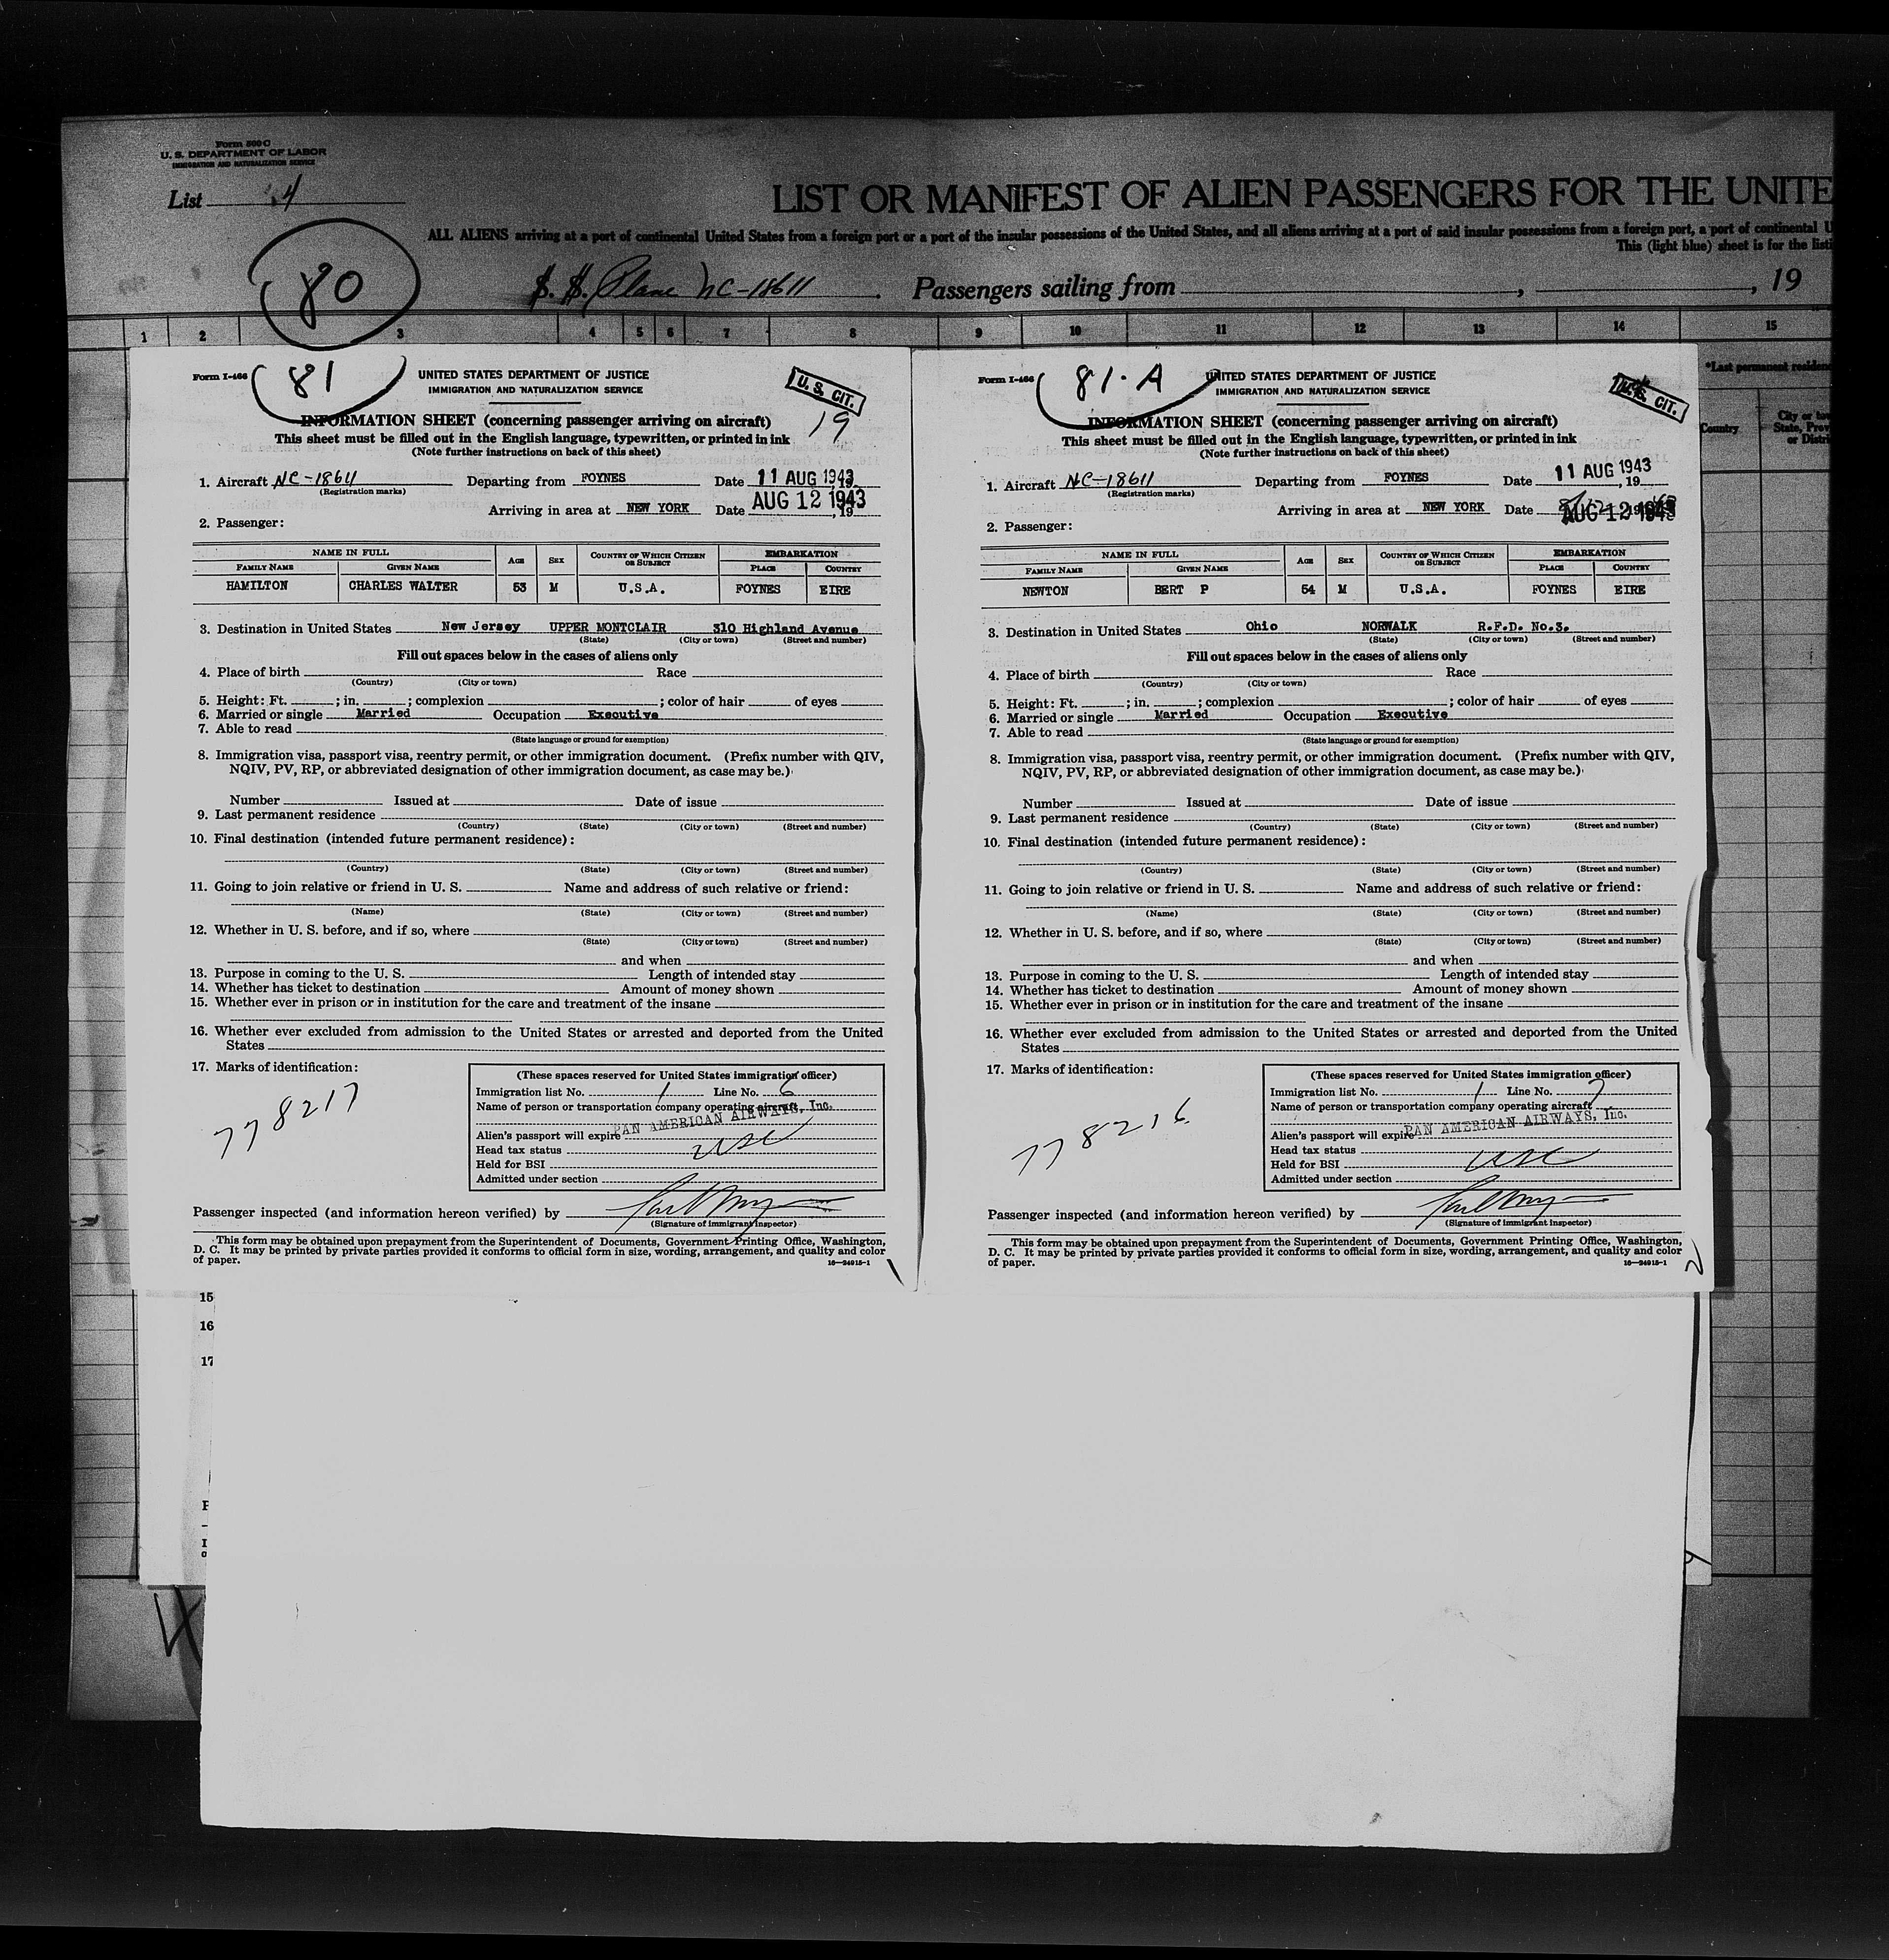 Form 500 C
U. S. DEPARTMENT OF LABOR
IMMIGRATION AND NATURALIZATION SERVICE
List 4
LIST OR MANIFEST OF ALIEN PASSENGERS FOR THE UNITE
ALL ALIENS arriving at a port of continental United States from a foreign port or a port of the insular possessions of the United States, and all aliens arriving at a port of said insular possessions from a foreign port, a port of continental U
This (light blue) sheet is for the listi
80
S. S. Plane NC-18611 Passengers sailing from , , 19
1 2 3 4 5 6 7 8 9 10 11 12 13 14 15
*Last permanent residenc
Country
City or tow
State, Prov
or Distri
Form I-466
81
UNITED STATES DEPARTMENT OF JUSTICE
IMMIGRATION AND NATURALIZATION SERVICE
U. S. CIT.
19
INFORMATION SHEET (concerning passenger arriving on aircraft)
This sheet must be filled out in the English language, typewritten, or printed in ink
(Note further instructions on back of this sheet)
1. Aircraft NC-18611 Departing from FOYNES Date 11 AUG 1943, 19
(Registration marks)
Arriving in area at NEW YORK Date AUG 12 1943, 19
2. Passenger:
NAME IN FULL AGE SEX COUNTRY OF WHICH CITIZEN OR SUBJECT EMBARKATION
FAMILY NAME GIVEN NAME PLACE COUNTRY
HAMILTON CHARLES WALTER 53 M U.S.A. FOYNES EIRE
3. Destination in United States New Jersey UPPER MONTCLAIR 310 Highland Avenue
(State) (City or town) (Street and number)
Fill out spaces below in the cases of aliens only
4. Place of birth Race
(Country) (City or town)
5. Height: Ft. ; in. ; complexion ; color of hair of eyes
6. Married or single Married Occupation Executive
7. Able to read
(State language or ground for exemption)
8. Immigration visa, passport visa, reentry permit, or other immigration document. (Prefix number with QIV,
NQIV, PV, RP, or abbreviated designation of other immigration document, as case may be.)
Number Issued at Date of issue
9. Last permanent residence
(Country) (State) (City or town) (Street and number)
10. Final destination (intended future permanent residence):
(Country) (State) (City or town) (Street and number)
11. Going to join relative or friend in U. S. Name and address of such relative or friend:
(Name) (State) (City or town) (Street and number)
12. Whether in U. S. before, and if so, where
(State) (City or town) (Street and number)
and when
13. Purpose in coming to the U. S. Length of intended stay
14. Whether has ticket to destination Amount of money shown
15. Whether ever in prison or in institution for the care and treatment of the insane
16. Whether ever excluded from admission to the United States or arrested and deported from the United
States
17. Marks of identification:
778217
(These spaces reserved for United States immigration officer)
Immigration list No. 1 Line No. 6
Name of person or transportation company operating aircraft
PAN AMERICAN AIRWAYS, Inc.
Alien's passport will expire
Head tax status USC
Held for BSI
Admitted under section
Passenger inspected (and information hereon verified) by
(Signature of immigrant inspector)
This form may be obtained upon prepayment from the Superintendent of Documents, Government Printing Office, Washington,
D. C. It may be printed by private parties provided it conforms to official form in size, wording, arrangement, and quality and color
of paper.
16—24915-1
Form I-466
81-A
UNITED STATES DEPARTMENT OF JUSTICE
IMMIGRATION AND NATURALIZATION SERVICE
U. S. CIT.
INFORMATION SHEET (concerning passenger arriving on aircraft)
This sheet must be filled out in the English language, typewritten, or printed in ink
(Note further instructions on back of this sheet)
1. Aircraft NC-18611 Departing from FOYNES Date 11 AUG 1943, 19
(Registration marks)
Arriving in area at NEW YORK Date AUG 12 1943
2. Passenger:
NAME IN FULL AGE SEX COUNTRY OF WHICH CITIZEN OR SUBJECT EMBARKATION
FAMILY NAME GIVEN NAME PLACE COUNTRY
NEWTON BERT P 54 M U.S.A. FOYNES EIRE
3. Destination in United States Ohio NORWALK R.F.D. No.3.
(State) (City or town) (Street and number)
Fill out spaces below in the cases of aliens only
4. Place of birth Race
(Country) (City or town)
5. Height: Ft. ; in. ; complexion ; color of hair of eyes
6. Married or single Married Occupation Executive
7. Able to read
(State language or ground for exemption)
8. Immigration visa, passport visa, reentry permit, or other immigration document. (Prefix number with QIV,
NQIV, PV, RP, or abbreviated designation of other immigration document, as case may be.)
Number Issued at Date of issue
9. Last permanent residence
(Country) (State) (City or town) (Street and number)
10. Final destination (intended future permanent residence):
(Country) (State) (City or town) (Street and number)
11. Going to join relative or friend in U. S. Name and address of such relative or friend:
(Name) (State) (City or town) (Street and number)
12. Whether in U. S. before, and if so, where
(State) (City or town) (Street and number)
and when
13. Purpose in coming to the U. S. Length of intended stay
14. Whether has ticket to destination Amount of money shown
15. Whether ever in prison or in institution for the care and treatment of the insane
16. Whether ever excluded from admission to the United States or arrested and deported from the United
States
17. Marks of identification:
778216
(These spaces reserved for United States immigration officer)
Immigration list No. 1 Line No. 7
Name of person or transportation company operating aircraft
PAN AMERICAN AIRWAYS, Inc.
Alien's passport will expire
Head tax status
Held for BSI USC
Admitted under section
Passenger inspected (and information hereon verified) by
(Signature of immigrant inspector)
This form may be obtained upon prepayment from the Superintendent of Documents, Government Printing Office, Washington,
D. C. It may be printed by private parties provided it conforms to official form in size, wording, arrangement, and quality and color
of paper.
16—24915-1
15
16
17